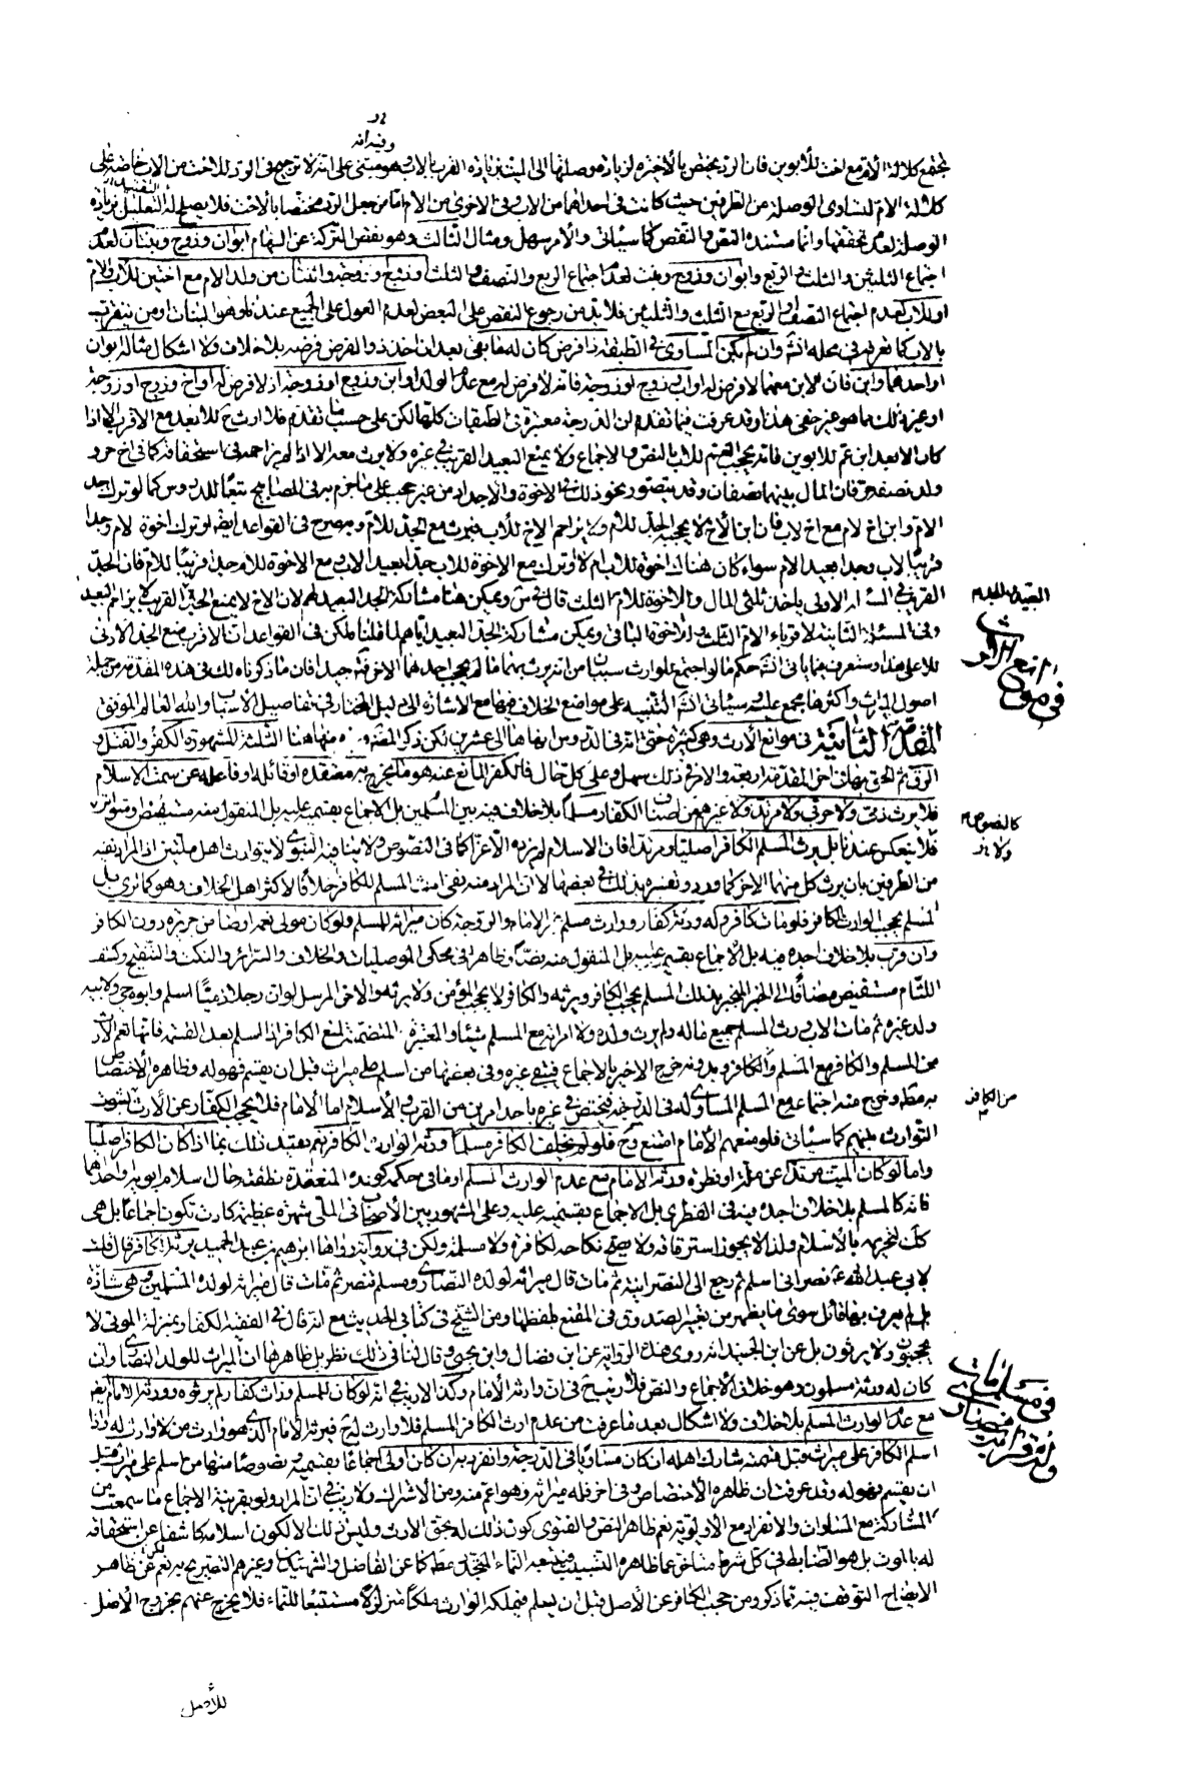 وفيه انه
تجتمع كلالة الام مع اخت للابوين فان الرد يختص بالاخيرة لزيادة وصلتها الى الميت بزيادة القرب بالاب وهو مبني على انه لا ترجيح في الرد للاخت من الاب خاصة على
كلالة الام لتساوي الوصلة من الطرفين حيث كانت في احداهما من الاب وفي الاخرى من الام اما من جعل الرد مختصا بالاخت فلا يصلح له التعليل بزيادة
الوصلة لعدم تحققها وانما مستنده النص والنقص كما سيأتي والامر سهل ومثال الثالث وهو نقص التركة عن السهام ابوان وزوج وبنتان لعدم
اجتماع الثلثين والثلث والربع وابوان وزوج وبنت لعدم اجتماع الربع والنصف والثلث وزوج او زوجة واثنتان من ولد الام مع اختين للاب والام
او للاب لعدم اجتماع النصف او الربع مع الثلث والثلثين فلا بد من رجوع النقص على البعض لعدم العول على الجميع عندنا وهو البنات ومن يتقرب
بالاب كما تعرفه في محله انشاء الله وان لم يكن المساوي في الطبقة ذا فرض كان له ما بقي بعد ان اخذ ذو الفرض فرضه بلا خلاف ولا اشكال مثاله ابوان
او احدهما وابن فان الابن معهما لا فرض له او اب وزوج او زوجة فانه لا فرض له مع عدم الولد او ابن وزوج او زوجة اذ لا فرض له او اخ وزوج او زوجة
او غير ذلك مما هو غير خفي هذا وقد عرفت فيما تقدم ان الدرجة معتبرة في الطبقات كلها لكن على حسب ما تقدم فلا ارث ح للابعد مع الاقرب الا اذا
كان الابعد ابن عم للابوين فانه يحجب العم للاب بالنص والاجماع ولا يمنع البعيد القريب في غيره ولا يرث معه الا اذا لم يزاحمه في استحقاقه كما في اخ حر و
ولد نصفه حر فان المال بينهما نصفان وقد يتصور نحو ذلك في الاخوة والاجداد من غير حجب على ما جزم به في المصابيح تبعا للدروس كما لو ترك جد
الام وابن اخ لام مع اخ لاب فان ابن الاخ لا يحجبه الجد للام ولا يزاحم الاخ للاب فيرث مع الجد للام وبه صرح في القواعد ايضا لو ترك اخوة لام وجدا
قريبا لاب وجدا بعيد الام سواء كان هناك اخوة للاب ام لا او ترك مع الاخوة للاب جدا بعيد الاب ومع الاخوة للام جدا قريبا للام فان الجد
القريب في المسألة الاولى ياخذ ثلثي المال والاخوة للام الثلث قال في س ويمكن هنا مشاركة الجد البعيد لهم لان الاخ لا يمنع الجد القريب لا يزاحم البعيد
وفي المسئلة الثانية لاقرباء الام الثلث والاخوة الباقي ويمكن مشاركة الجد البعيد اياهم لما قلناه لكن في القواعد ان الاقرب منع الجد الادنى
للاعلى هذا وستعرف بما ياتي انشاء الله حكم ما لو اجتمع للوارث سببان من انه يرث بهما ما لم يحجب احدهما الاخر جيدا فان ما ذكرناه لك في هذه المقدمة من جملة
اصول الميراث واكثرها مجمع عليه وسيأتي انشاء الله التنبيه على مواضع الخلاف فيها مع الاشارة الى دليل المختار في تفاصيل الاسباب والله العالم الموفق
المقدمة الثانية في موانع الارث وهي كثيرة حتى انه في الدروس انهاها الى عشرين لكن ذكر المصنف منها هنا الثلثة المشهورة الكفر والقتل و
الرق ثم الحق بها في اخر المقدمة اربعة والامر في ذلك سهل وعلى كل حال فالكفر المانع عنه هو ما يخرج به معتقده او قائله او فاعله عن سمت الاسلام
فلا يرث ذمي ولا حربي ولا مرتد ولا غيرهم من اصناف الكفار مسلما بلا خلاف فيه بين المسلمين بل الاجماع بقسميه عليه بل المنقول منه مستفيض ومتواتر
فلا ينعكس عندنا بل يرث المسلم الكافر اصليا ومرتدا فان الاسلام لم يزده الا عزا كما في النصوص ولا ينافيه النبوي لا يتوارث اهل ملتين اذ المراد نفيه
من الطرفين بان يرث كل منهما الاخر كما ورد وتفسيره بذلك في بعضها لا ان المراد منه نفي ارث المسلم للكافر خلافا لاكثر اهل الخلاف وهو كما ترى بل
المسلم يحجب الوارث الكافر فلو مات كافر وله ورثة كفار ووارث مسلم غير الامام والزوجة كان ميراثه للمسلم ولو كان مولى نعمة او ضامن جريرة دون الكافر
وان قرب بلا خلاف اجده فيه بل الاجماع بقسميه عليه بل المنقول منه نصا وظاهرا في محكي الموصليات والخلاف والسرائر والنكت والتنقيح وكشف
اللثام مستفيض مضافا الى الخبر المنجبر بذلك المسلم يحجب الكافر ويرثه والكافر لا يحجب المؤمن ولا يرثه والاخر المرسل لو ان رجلا ذميا اسلم وابوه حي ولابيه
ولد غيره ثم مات الاب ورث المسلم جميع ماله ولم يرث ولده ولا امراته مع المسلم شيئا والمعتبرة المتضمنة لمنع الكافر اذا اسلم بعد القسمة فانها تعم الارث
من المسلم والكافر مع المسلم والكافر وبدونه خرج الاخير بالاجماع فبقي غيره وفي بعضها من اسلم على ميراث قبل ان يقسم فهو له وظاهره الاختصاص
به مطلقا وخرج منه اجتماعه مع المسلم المساوي له في الدرجة فيختص في غيره باحد امرين من القرب والاسلام اما الامام فلا يحجب الكفار عن الارث لثبوت
التوارث بينهم كما سيأتي فلو منعهم الامام امتنع وح فلو لم يخلف الكافر مسلما ورثه الوارث الكافر نعم يعتبد ذلك بما اذا كان الكافر اصليا
واما لو كان الميت مرتدا عن ملة او فطرة ورثه الامام مع عدم الوارث المسلم او ما في حكمه كونه المنعقدة نطفته حال اسلام ابويه او احدهما
فانه كالمسلم بلا خلاف اجده فيه في الفطري بل الاجماع بقسميه عليه وعلى المشهور بين الاصحاب في الملي شهرة عظيمة كادت تكون اجماعا بل هي
كك لتحرمه بالاسلام ولذا لا يجوز استرقاقه ولا يصح نكاحه لكافرة ولا مسلمة ولكن في رواية رواها ابرهيم بن عبد الحميد يرثه الكافر قال قلت
لابي عبد الله ع نصراني اسلم ثم رجع الى النصرانية ثم مات قال ميراثه لولده النصارى ومسلم تنصر ثم مات قال ميراثه لولده المسلمين وهي شاذة
بل لم يعرف بها قائل سوى ما يظهر من تعبير الصدوق في المقنع بلفظها ومن الشيخ في كتابي الحديث مع انه قال في الفقيه الكفار بمنزلة الموتى لا
يحجبون ولا يرثون بل عن ابن الجنيد انه روى هذه الرواية عن ابن فضال وابن يحيى وقال لنا في ذلك نظر بل ظاهرها ان الميراث للولد النصارى وان
كان له ورثة مسلمون وهو خلاف الاجماع والنص فلا ريب ح في ان وارثه الامام وكذا لا ريب في انه لو كان للمسلم وراث كفار لم يرثوه وورثه الامام نعم
مع عدم الوارث المسلم بلا خلاف ولا اشكال بعد ما عرفت من عدم ارث الكافر المسلم فلا وارث له ح فيرثه الامام الذي هو وارث من لا وارث له واذا
اسلم الكافر على ميراث قبل قسمته شارك اهله ان كان مساويا في الدرجة وانفرد به ان كان اولى اجماعا بقسميه ونصوصا منها من اسلم على ميراث قبل
ان يقسم فهو له وقد عرفت ان ظاهره الاختصاص وفي اخر فله ميراثه وهو اعم منه ومن الاشتراك ولا ريب في ان المراد ولو بقرينة الاجماع ما سمعت من
المشاركة مع المساوات والانفراد مع الاولوية نعم ظاهر النص والفتوى كون ذلك له بحق الارث وليس ذلك الا لكون اسلامه كاشفا عن استحقاقه
له بالموت بل هو الضابط في كل شرط متاخر عما ظاهره التسبيب فيتبعه النماء المتجدد كما عن الفاضل والشهيدين وغيرهم التصريح به نعم عن ظاهر
الايضاح التوقف فيه مما ذكر ومن حجب الكافر عن الاصل قبل ان يسلم فيملكه الوارث ملكا متزلزلا مستتبعا للنماء فلا يخرج عنهم بخروج الاصل
البعيد والبعيد
في موانع الارث
كالنصوص
ولا يرث
من الكافر
في مسلم مات
للاصل